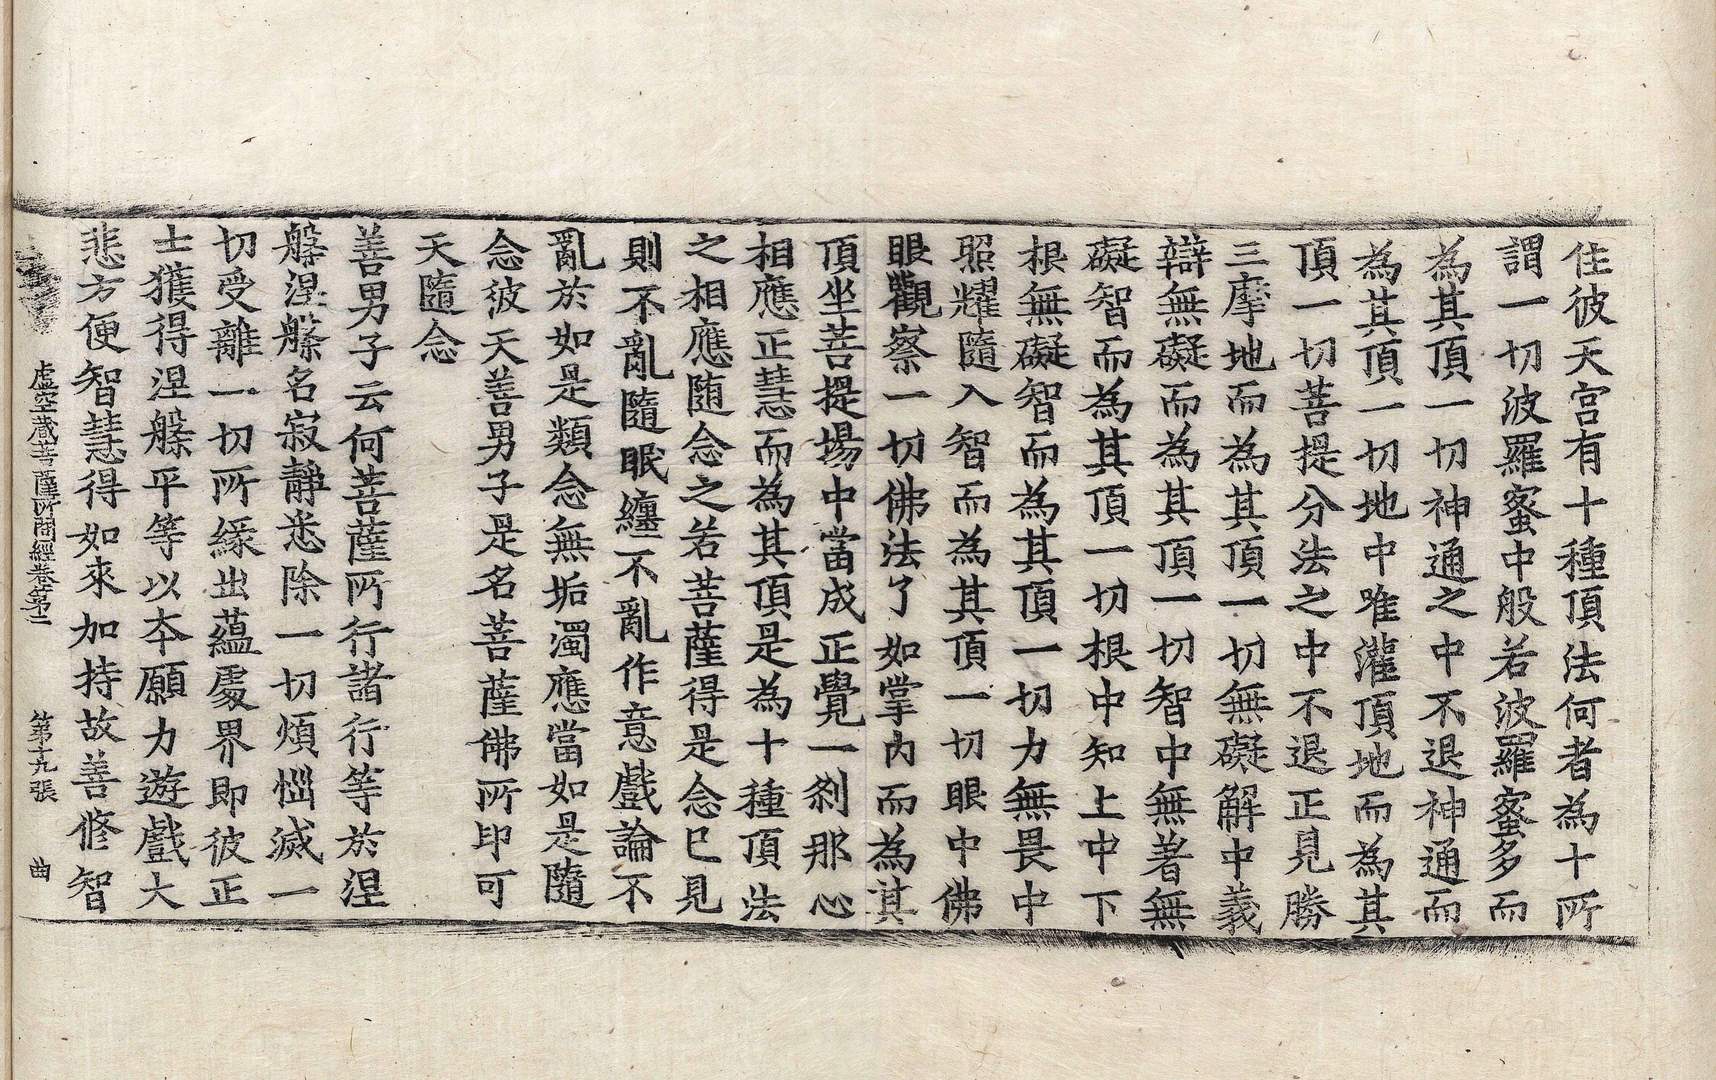 住彼天宮有十種頂法何者為十所
謂一切波羅蜜中般若波羅蜜多而
為其頂一切神通之中不退神通而
為其頂一切地中唯灌頂地而為其
頂一切菩提分法之中不退正見勝
三摩地而為其頂一切無礙解中義
辯無礙而為其頂一切智中無著無
礙智而為其頂一切根中知上中下
根無礙智而為其頂一切力無畏中
照耀隨入智而為其頂一切眼中佛
眼觀察一切佛法了如掌內而為其
頂坐菩提場中當成正覺一剎那心
相應正慧而為其頂是為十種頂法
之相應隨念之若菩薩得是念已見
則不亂隨眠纏不亂作意戲論不
亂於如是類念無垢濁應當如是隨
念彼天善男子是名菩薩佛所印可
天隨念
善男子云何菩薩所行諸行等於涅
槃涅槃名寂靜悉除一切煩惱滅一
切受離一切所緣出蘊處界即彼正
士獲得涅槃平等以本願力遊戲大
悲方便智慧得如來加持故善修智
虛空藏菩薩所問經卷第二 第十九張 曲